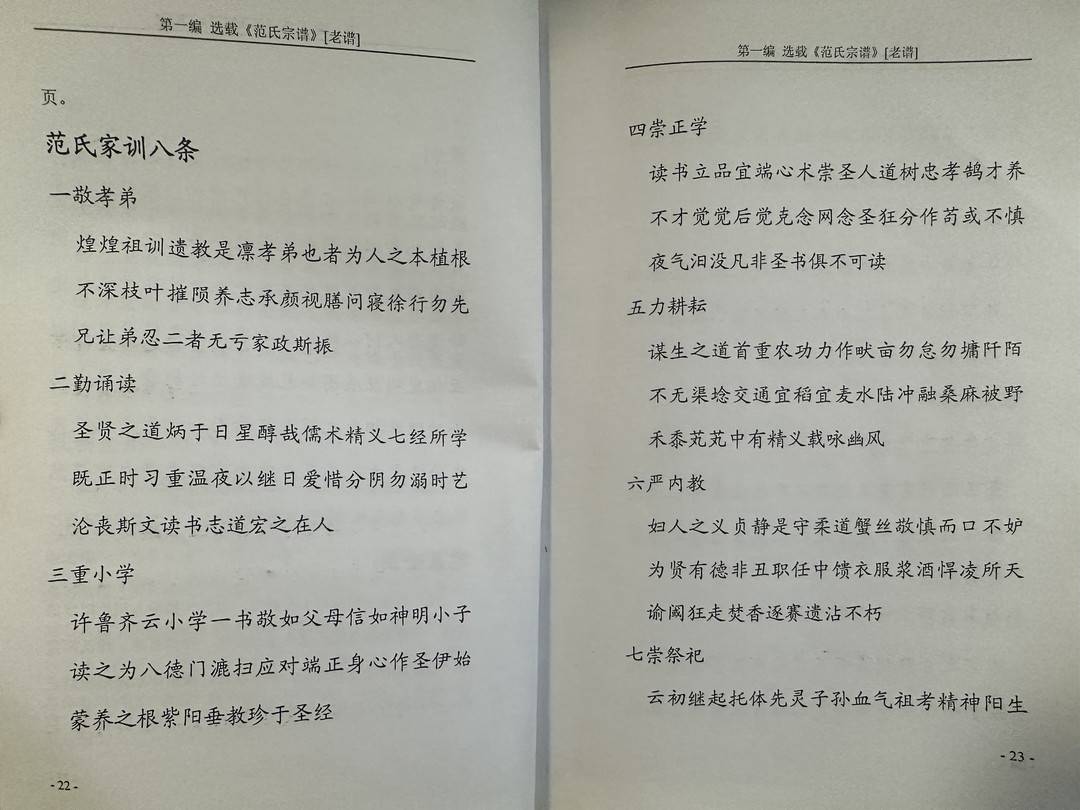 第一编 选载《范氏宗谱》[老谱]
页。
范氏家训八条
一敬孝弟
煌煌祖训遗教是凛孝弟也者为人之本植根
不深枝叶摧陨养志承颜视膳问寝徐行勿先
兄让弟忍二者无亏家政斯振
二勤诵读
圣贤之道炳于日星醇哉儒术精义七经所学
既正时习重温夜以继日爱惜分阴勿溺时艺
沦丧斯文读书志道宏之在人
三重小学
许鲁齐云小学一书敬如父母信如神明小子
读之为八德门漉扫应对端正身心作圣伊始
蒙养之根紫阳垂教珍于圣经
- 22 -
第一编 选载《范氏宗谱》[老谱]
四崇正学
读书立品宜端心术崇圣人道树忠孝鹄才养
不才觉觉后觉克念网念圣狂分作苟或不慎
夜气汩没凡非圣书俱不可读
五力耕耘
谋生之道首重农功力作畎亩勿怠勿墉阡陌
不无渠埝交通宜稻宜麦水陆冲融桑麻被野
禾黍芃芃中有精义载咏幽风
六严内教
妇人之义贞静是守柔道蟹丝敬慎而口不妒
为贤有德非丑职任中馈衣服浆酒悍凌所天
谕阈狂走焚香逐赛遗沾不朽
七崇祭祀
云初继起托体先灵子孙血气祖考精神阳生
- 23 -